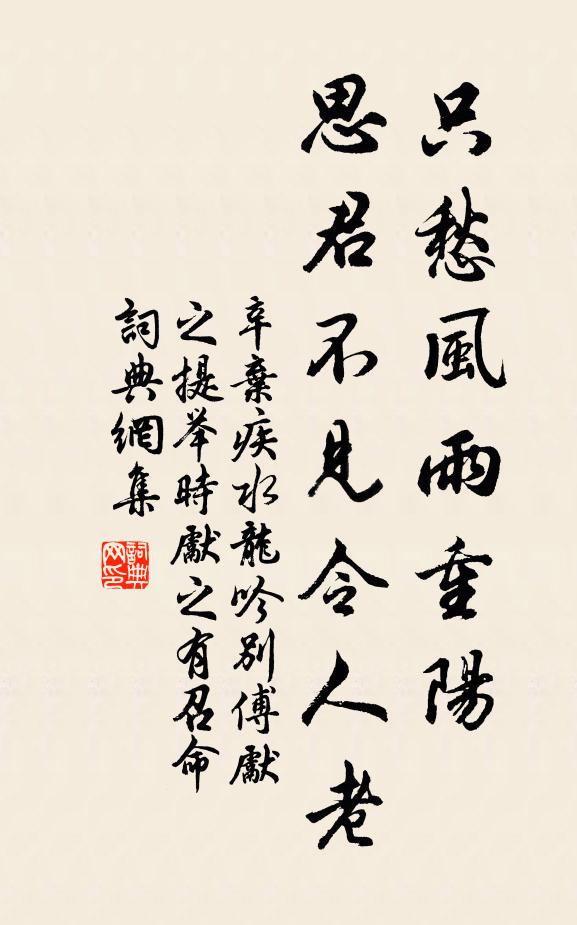 只愁風雨重陽
思君不見令人老
辛棄疾水龍吟別傅獻
之提举時獻之有召命
詞典網集
詞典
网印